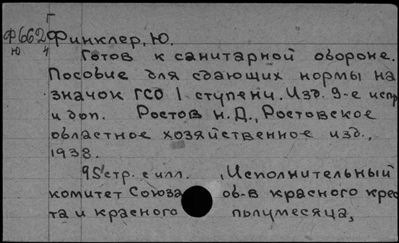 Г
Ф662 Финклер, Ю.
Ю 4
Готов к санитарной обороне.
Пособие для сдающих нормы на
значок ГСО I ступени. Изд. 9-е испр
и доп. Ростов н.Д., Ростовское
областное хозяйственное изд.,
1938.
95 стр. с илл. (Исполнительный
комитет Союза об-в красного крес
та и красного полумесяца,